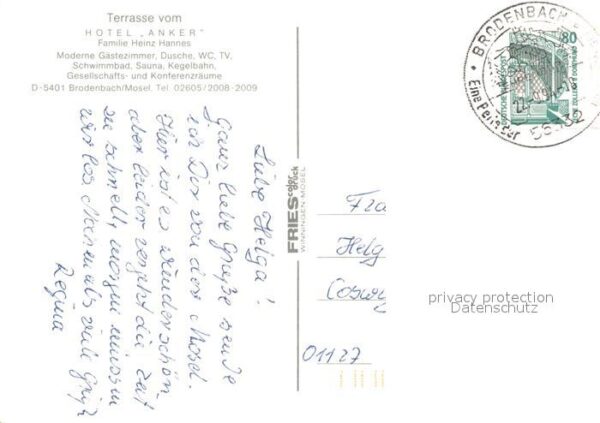 Terrasse vom
HOTEL „ANKER"
Familie Heinz Hannes
Moderne Gästezimmer, Dusche, WC, TV,
Schwimmbad, Sauna, Kegelbahn,
Gesellschafts- und Konferenzräume
D-5401 Brodenbach/Mosel. Tel. 02605/2008-2009
Liebe Helga!
Ganz liebe Grüße sende
ich Dir von der Mosel.
Hier ist es wunderschön,
aber leider vergeht die Zeit
zu schnell, morgen müssen
wir los. Nochmals viele Grüße
Regina
FRIES color druck
WINNINGEN MOSEL
BRODENBACH
Eine Perle der
56332
80
DEUTSCHE BUNDESPOST
ZOLLERN II DORTMUND
Fra
Helg
Cosw
01127
privacy protection
Datenschutz